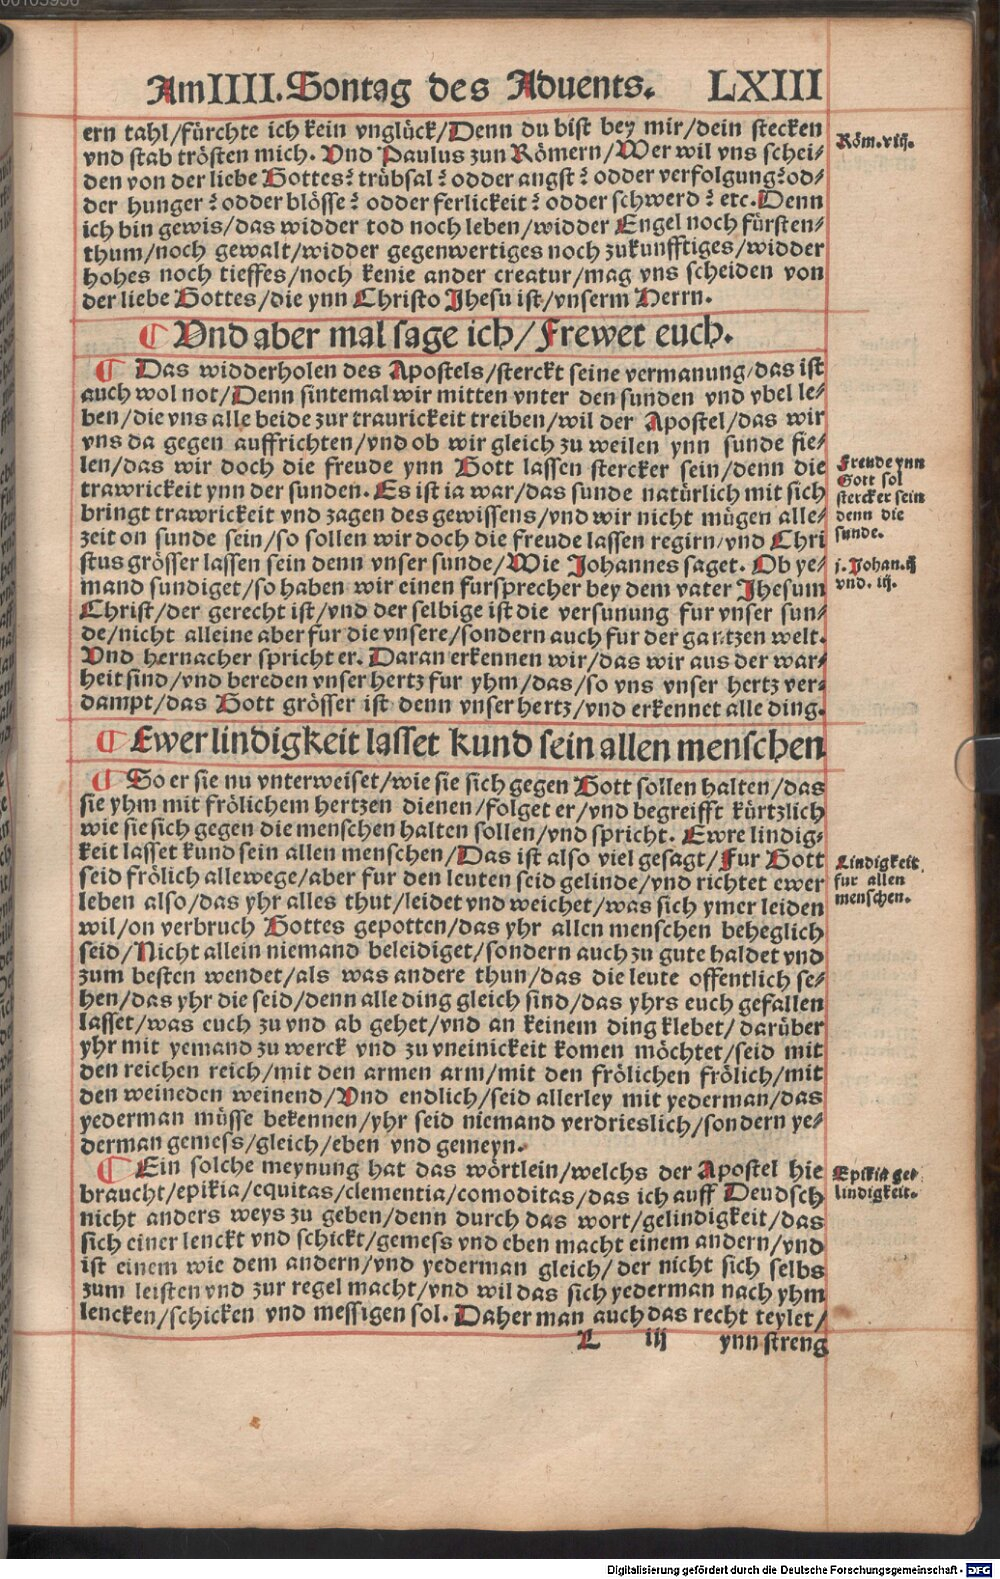 Am IIII. Sontag des Aduents. LXIII
ern tahl/fürchte ich kein vnglück/Denn du bist bey mir/dein stecken
vnd stab trösten mich. Vnd Paulus zun Römern/Wer wil vns schei-
den von der liebe Gottes? trübsal? odder angst? odder verfolgung? od-
der hunger? odder blösse? odder ferlickeit? odder schwerd? etc. Denn
ich bin gewis/das widder tod noch leben/widder Engel noch fürsten-
thum/noch gewalt/widder gegenwertiges noch zukunfftiges/widder
hohes noch tieffes/noch kenie ander creatur/mag vns scheiden von
der liebe Gottes/die ynn Christo Jhesu ist/vnserm Herrn.
Röm.viij.
¶ Vnd aber mal sage ich/Frewet euch.
¶ Das widderholen des Apostels/sterckt seine vermanung/das ist
auch wol not/Denn sintemal wir mitten vnter den sunden vnd vbel le-
ben/die vns alle beide zur traurickeit treiben/wil der Apostel/das wir
vns da gegen auffrichten/vnd ob wir gleich zu weilen ynn sunde fie-
len/das wir doch die freude ynn Gott lassen stercker sein/denn die
trawrickeit ynn der sunden. Es ist ia war/das sunde natürlich mit sich
bringt trawrickeit vnd zagen des gewissens/vnd wir nicht mügen alle-
zeit on sunde sein/so sollen wir doch die freude lassen regirn/vnd Chri
stus grösser lassen sein denn vnser sunde/Wie Johannes saget. Ob ye-
mand sundiget/so haben wir einen fursprecher bey dem vater Jhesum
Christ/der gerecht ist/vnd der selbige ist die versunung fur vnser sun-
de/nicht alleine aber fur die vnsere/sondern auch fur der gantzen welt.
Vnd hernacher spricht er. Daran erkennen wir/das wir aus der war-
heit sind/vnd bereden vnser hertz fur yhm/das/so vns vnser hertz ver-
dampt/das Gott grösser ist denn vnser hertz/vnd erkennet alle ding.
Freude ynn
Gott sol
stercker sein
denn die
sunde.
j. Johan. ij
vnd. iij.
¶ Ewer lindigkeit lasset kund sein allen menschen
¶ So er sie nu vnterweiset/wie sie sich gegen Gott sollen halten/das
sie yhm mit frölichem hertzen dienen/folget er/vnd begreifft kürtzlich
wie sie sich gegen die menschen halten sollen/vnd spricht. Ewre lindig-
keit lasset kund sein allen menschen/Das ist also viel gesagt/Fur Gott
seid frölich allewege/aber fur den leuten seid gelinde/vnd richtet ewer
leben also/das yhr alles thut/leidet vnd weichet/was sich ymer leiden
wil/on verbruch Gottes gepotten/das yhr allen menschen beheglich
seid/Nicht allein niemand beleidiget/sondern auch zu gute haldet vnd
zum besten wendet/als was andere thun/das die leute offentlich se-
hen/das yhr die seid/denn alle ding gleich sind/das yhrs euch gefallen
lasset/was euch zu vnd ab gehet/vnd an keinem ding klebet/darüber
yhr mit yemand zu werck vnd zu vneinickeit komen möchtet/seid mit
den reichen reich/mit den armen arm/mit den frölichen frölich/mit
den weineden weinend/Vnd endlich/seid allerley mit yederman/das
yederman müsse bekennen/yhr seid niemand verdrieslich/sondern ye-
derman gemess/gleich/eben vnd gemeyn.
Lindigkeit
fur allen
menschen.
¶ Ein solche meynung hat das wörtlein/welchs der Apostel hie
braucht/epikia/equitas/clementia/comoditas/das ich auff Deudsch
nicht anders weys zu geben/denn durch das wort/gelindigkeit/das
sich einer lenckt vnd schickt/gemess vnd eben macht einem andern/vnd
ist einem wie dem andern/vnd yederman gleich/der nicht sich selbs
zum leisten vnd zur regel macht/vnd wil das sich yederman nach yhm
lencken/schicken vnd messigen sol. Daher man auch das recht teylet/
Epikia ge-
lindigkeit.
L iij ynn streng
Digitalisierung gefördert durch die Deutsche Forschungsgemeinschaft - DFG